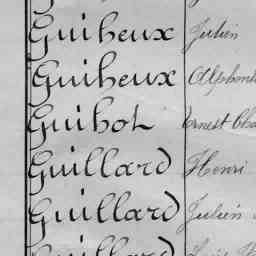 Guiheux Julien
Guiheux Alphonse
Guihot Ernest
Guillard Henri
Guillard Julien
Guillard